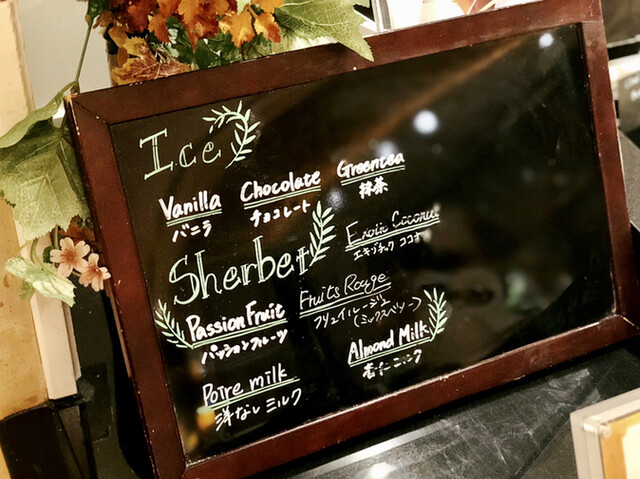 Ice
Vanilla
バニラ
Chocolate
チョコレート
Greentea
抹茶
Sherbet
Exotic Coconut
エキゾチック ココナッツ
Passion Fruit
パッションフルーツ
Fruits Rouge
フリュイルージュ
(ミックスベリー)
Poire milk
洋なしミルク
Almond Milk
杏仁ミルク